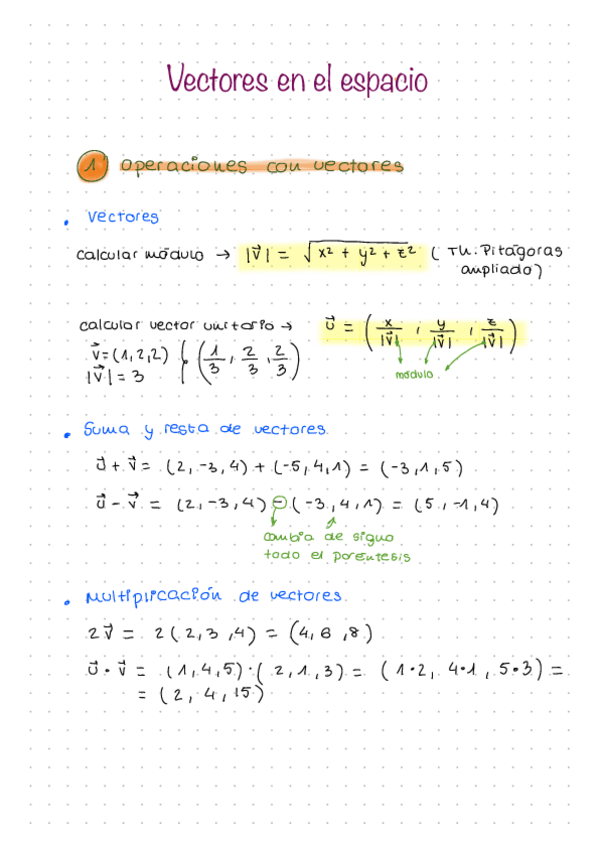 Vectores en el espacio
1 operaciones con vectores
• Vectores
calcular módulo → |v⃗| = √x² + y² + z² ( TH. Pitágoras
ampliado)
calcular vector unitario → u⃗ = ( x/|v⃗| , y/|v⃗| , z/|v⃗| )
v⃗ = (1, 2, 2) { ( 1/3 , 2/3 , 2/3 )
|v⃗| = 3
módulo
• Suma y resta de vectores
u⃗ + v⃗ = (2, -3, 4) + (-5, 4, 1) = (-3, 1, 5)
u⃗ - v⃗ = (2, -3, 4) - (-3, 4, 1) = (5, -1, 4)
cambia de signo
todo el paréntesis
• Multiplicación de vectores
2v⃗ = 2(2, 3, 4) = (4, 6, 8)
u⃗ · v⃗ = (1, 4, 5) · (2, 1, 3) = (1·2, 4·1, 5·3) =
= (2, 4, 15)